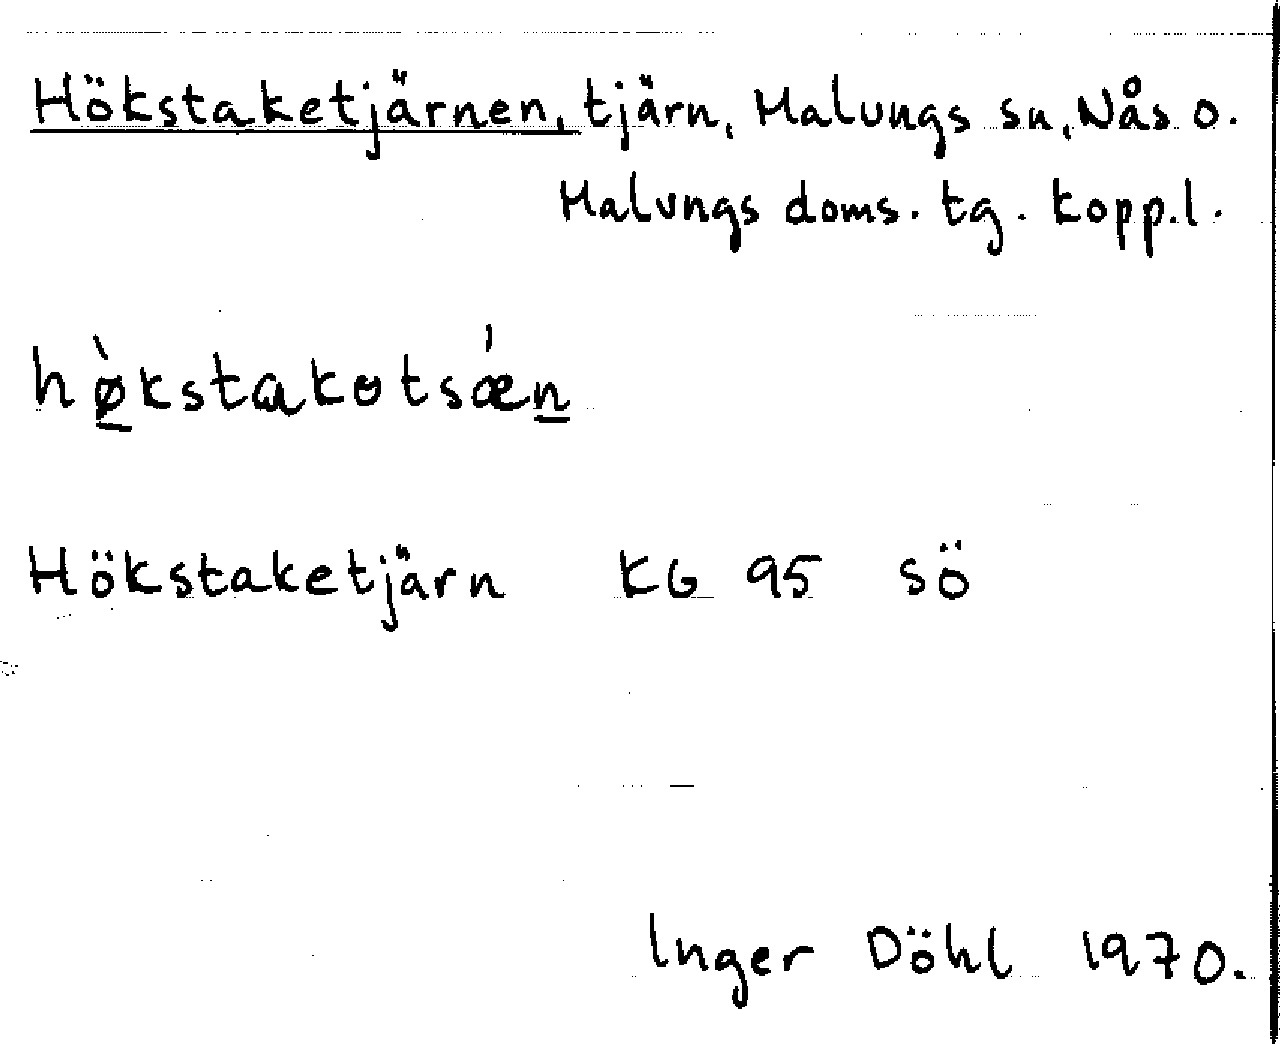 Hökstaketjärnen, tjärn, Malungs sn, Nås o.
Malungs doms. tg. Kopp.l.
hø̠̀kstakotsǽn̲
Hökstaketjärn KG 95 sö
Inger Döhl 1970.